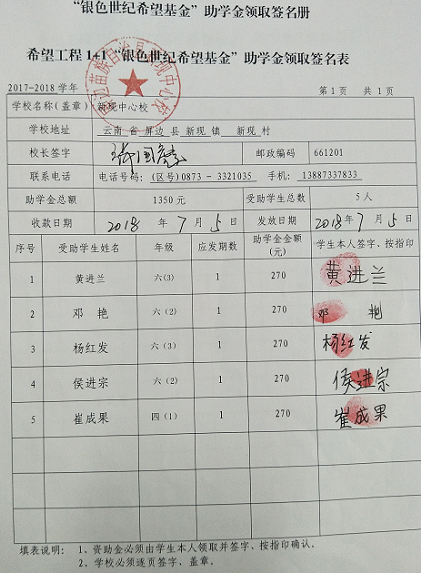 “银色世纪希望基金”助学金领取签名册
希望工程1+1“银色世纪希望基金”助学金领取签名表
2017-2018 学年 第1页 共1页
学校名称(盖章) 新现中心校
学校地址 云南 省 屏边 县 新现 镇 新现 村
校长签字 邮政编码 661201
联系电话 电话号码: (区号)0873 - 3321035 手机: 13887337833
助学金总额 1350元 受助学生总数 5人
收款日期 2018 年 7 月 5 日 发放日期 2018年 7 月 5 日
序号 受助学生姓名 年级 应发期数 助学金金额(元) 学生本人签字、按指印
1 黄进兰 六(3) 1 270 黄进兰
2 邓 艳 六(2) 1 270 邓 艳
3 杨红发 六(3) 1 270 杨红发
4 侯进宗 六(2) 1 270 侯进宗
5 崔成果 四(1) 1 270 崔成果
填表说明: 1、资助金必须由学生本人领取并签字、按指印确认。
2、学校必须逐页签字、盖章。